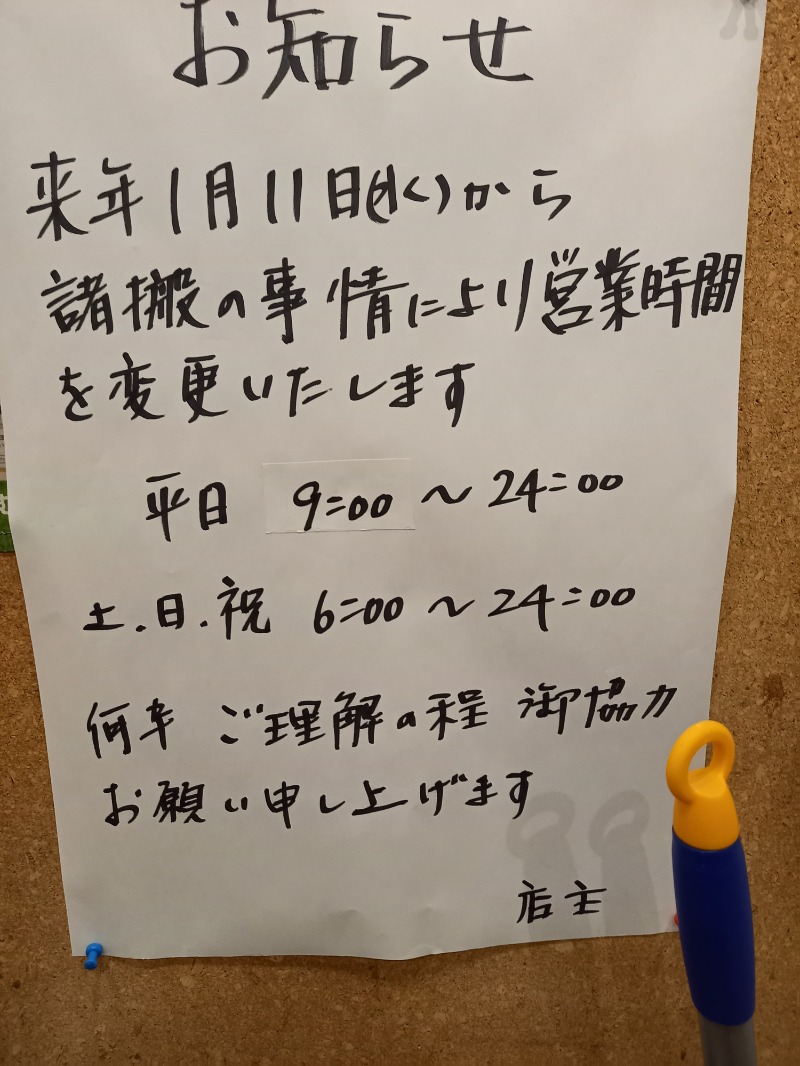 お知らせ
来年1月11日(水)から
諸搬の事情により営業時間
を変更いたします
平日 9:00 ～ 24:00
土.日.祝 6:00 ～ 24:00
何卒 ご理解の程 御協力
お願い申し上げます
店主